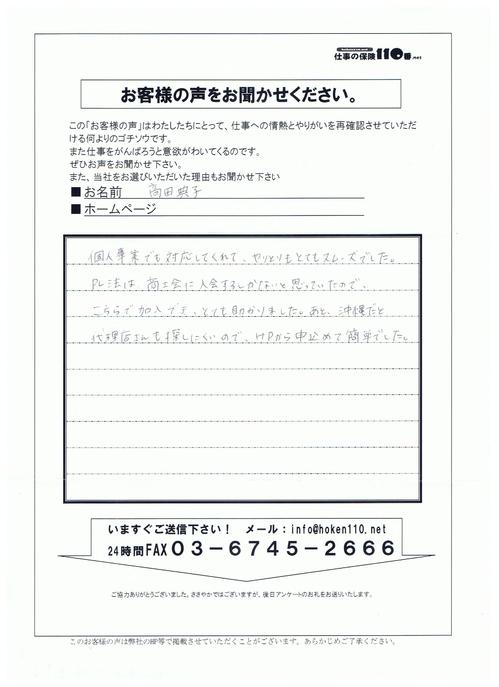 仕事の保険110番.net
お客様の声をお聞かせください。
この「お客様の声」はわたしたちにとって、仕事への情熱とやりがいを再確認させていただ
ける何よりのゴチソウです。
また仕事をがんばろうと意欲がわいてくるのです。
ぜひお声をお聞かせ下さい。
また、当社をお選びいただいた理由もお聞かせ下さい
■お名前 高田 子
■ホームページ
個人事業でも対応してくれて、やりとりもとてもスムーズでした。
PL法は、商工会に入会するしかないと思っていたので、
こちらで加入でき、とても助かりました。あと、沖縄だと
代理店さんも探しにくいので、HPから申込めて簡単でした。
いますぐご送信下さい! メール:info@hoken110.net
24時間FAX03-6745-2666
ご協力ありがとうございました。ささやかではございますが、後日アンケートのお礼をお送りいたします。
このお客様の声は弊社のHP等で掲載させていただくことがございます。あらかじめご了承ください。